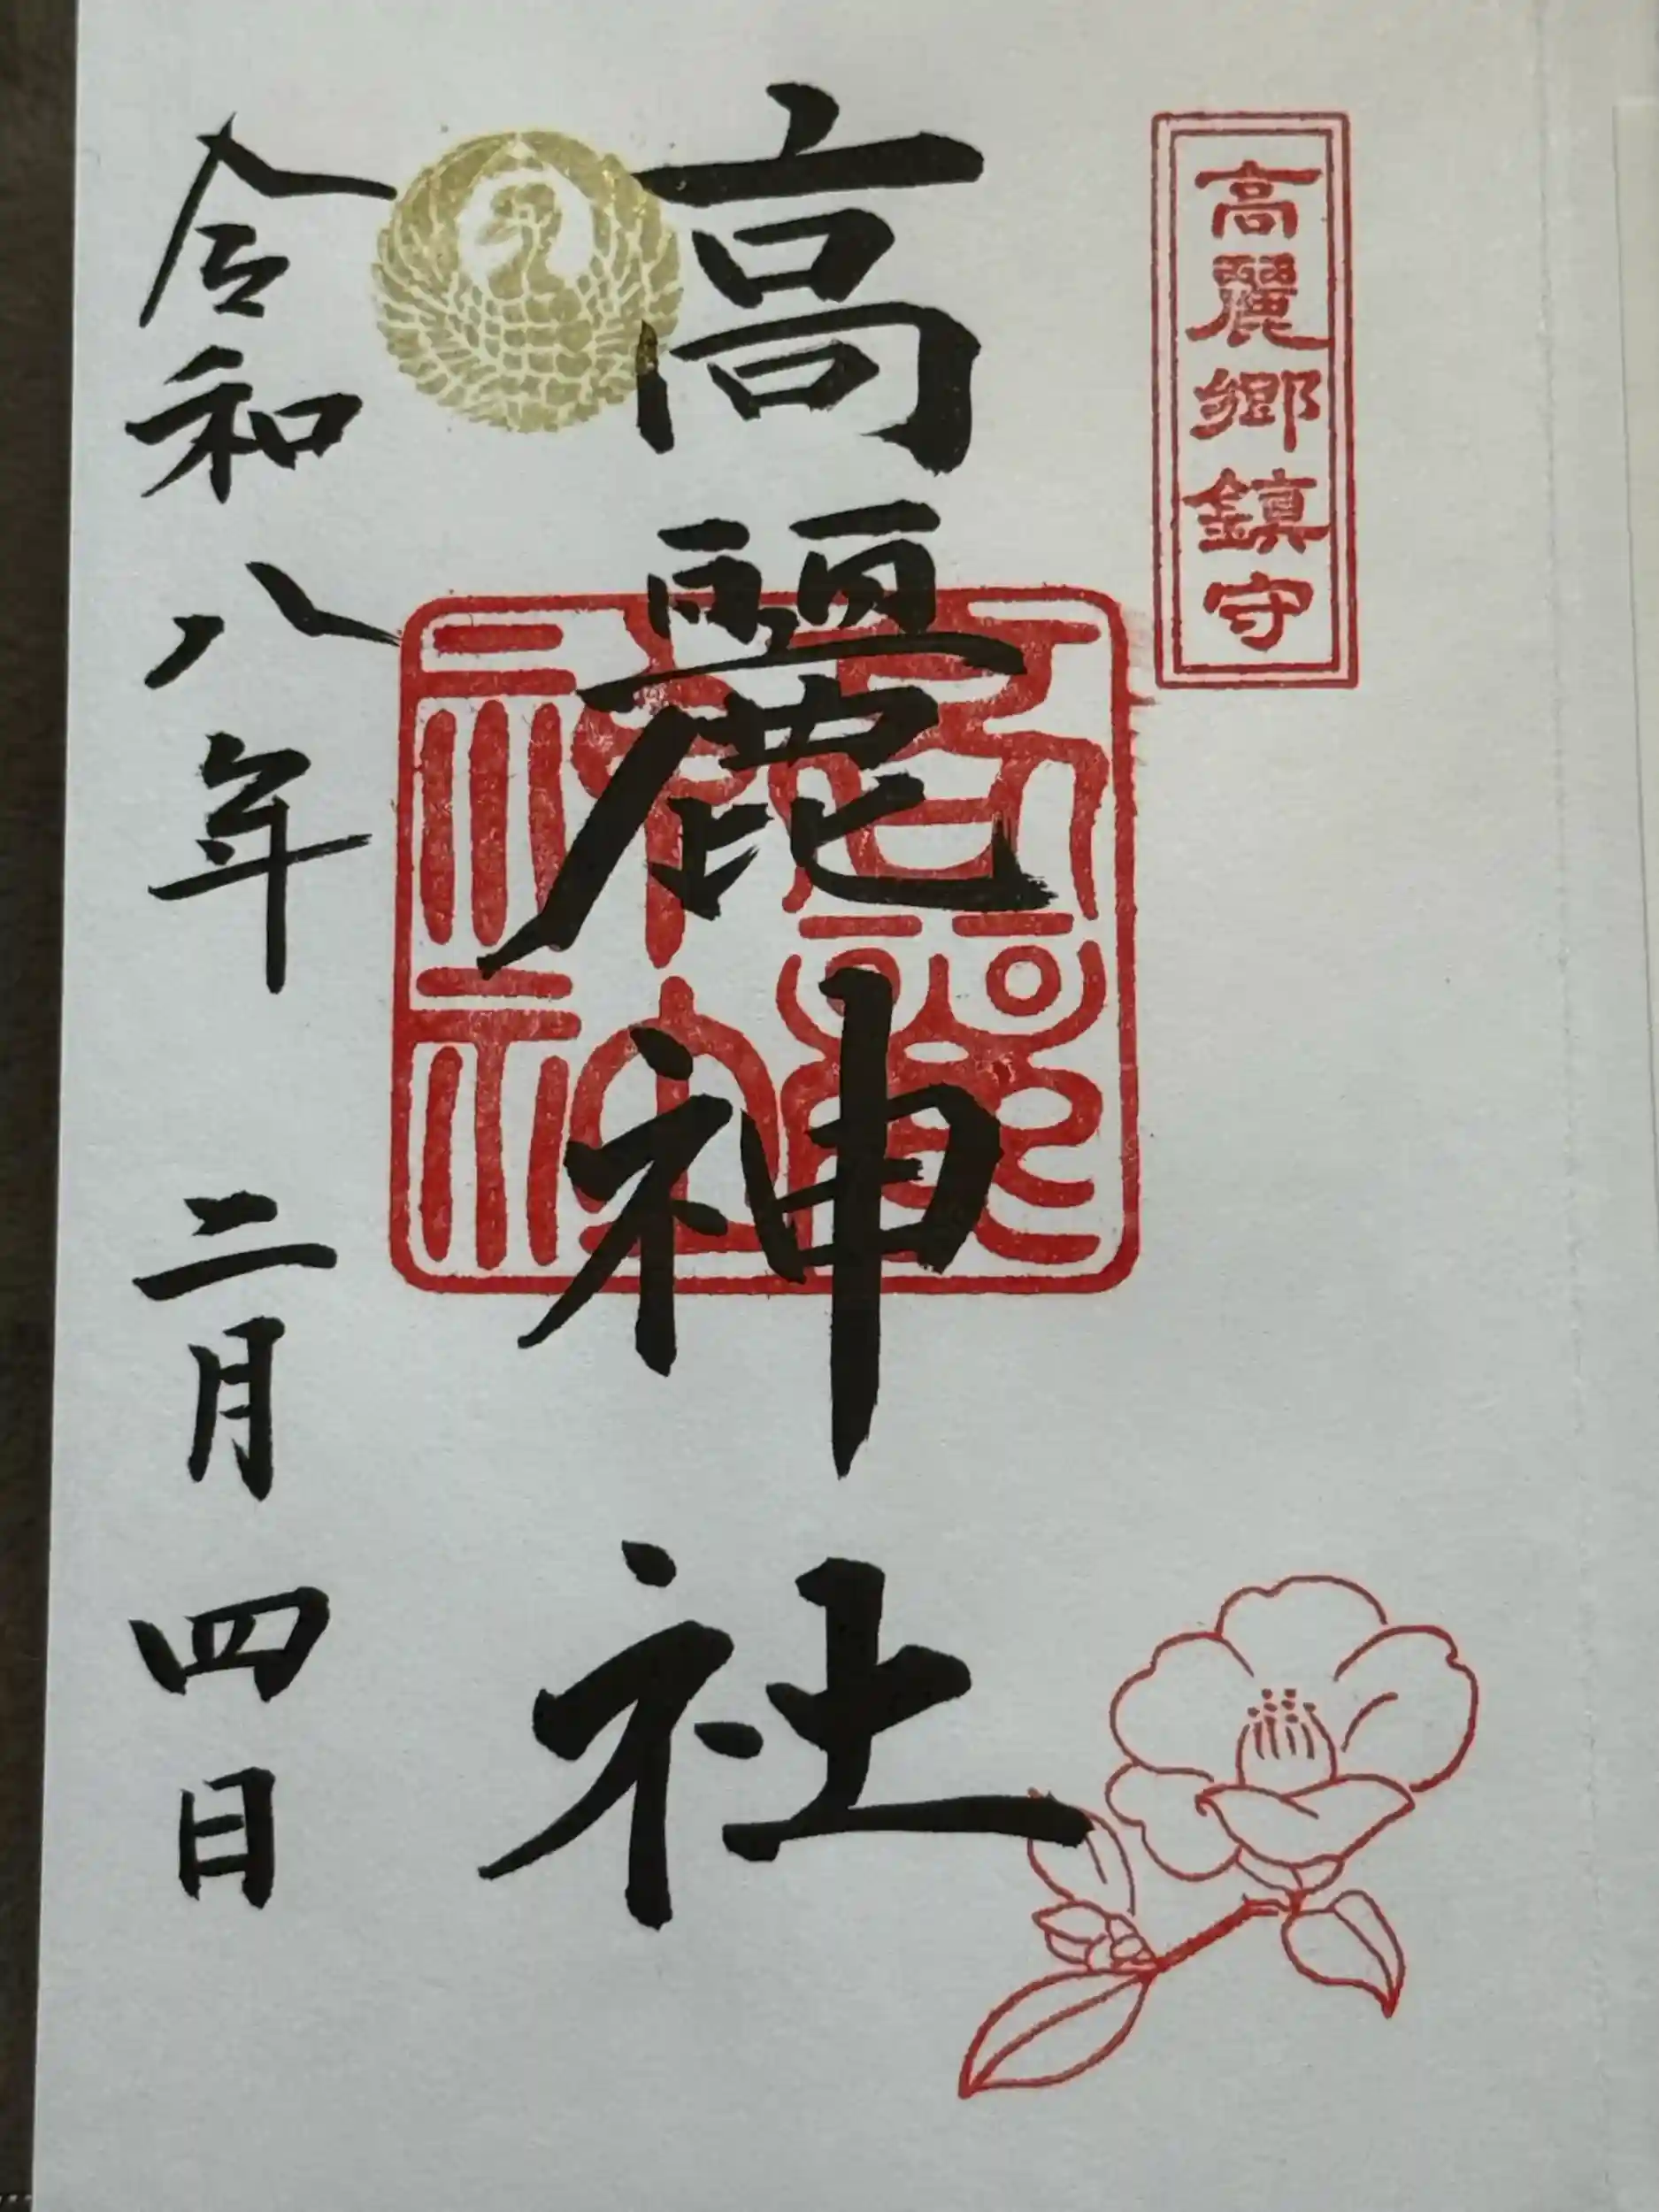 高麗郷鎮守
高麗神社
高麗神社
令和八年 二月四日